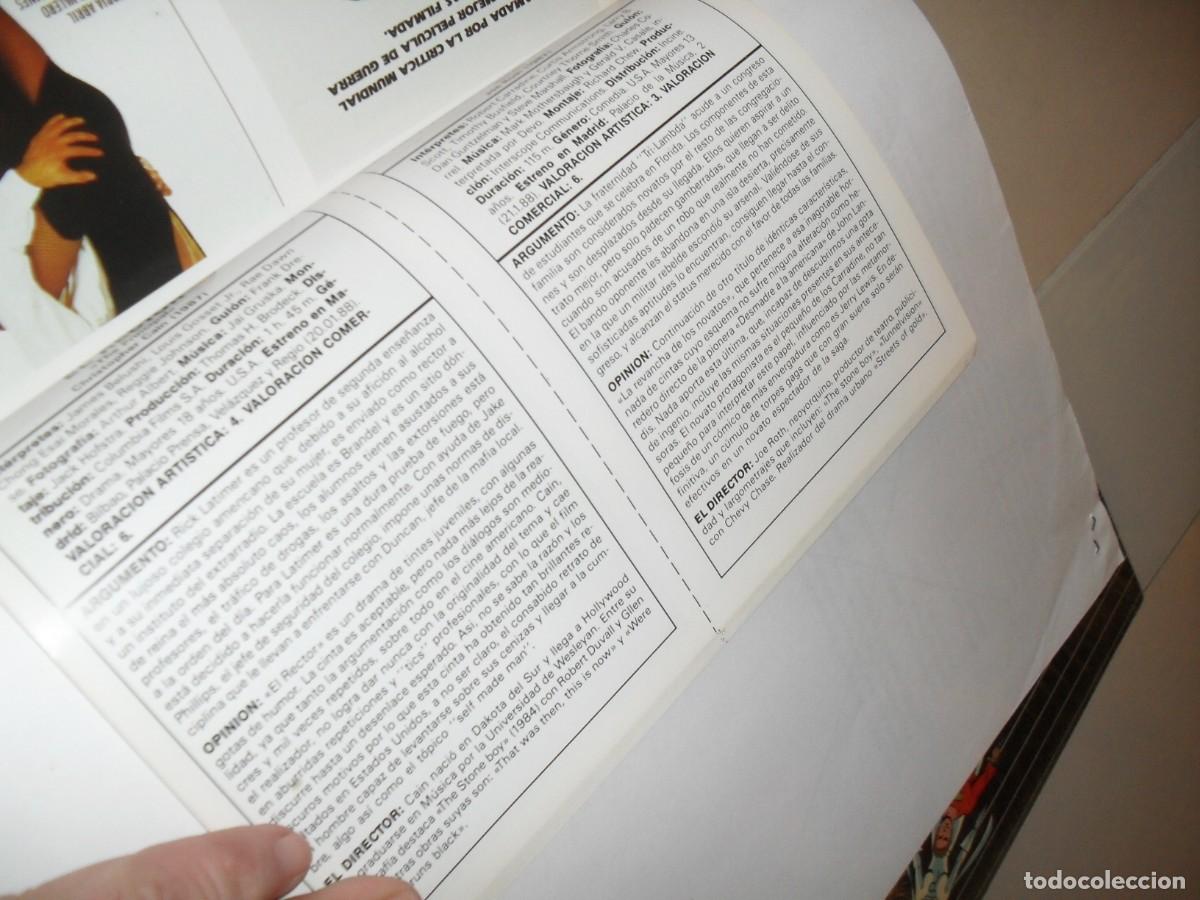 RIA ABRIL
MADA POR LA CRITICA MUNDIAL
MEJOR PELICULA DE GUERRA
FILMADA.
Christopher Cain (1987)
Intérpretes:
Louis Gosset Jr., Rae Dawn
Guión: Frank Dre-
Fotografía. Música: Jay Gruska. Mon-
taje: Producción: Thomas H. Brodeck. Dis-
tribución: Columbia Films S.A. Duración: 1 h. 45 m. Gé-
nero: Drama. Mayores 18 años. U.S.A. Estreno en Ma-
drid: Bilbao, Palacio de la Prensa, Velázquez y Regio (20.01.88).
VALORACION ARTISTICA: 4. VALORACION COMER-
CIAL: 6.
ARGUMENTO: Rick Latimer es un profesor de segunda enseñanza
en un lujoso colegio americano que, debido a su afición al alcohol
y a su inmediata separación de su mujer, es enviado como rector a
un instituto del extrarradio. La escuela es Brandel y es un sitio dón-
de reina el más absoluto caos, los alumnos tienen asustados a sus
profesores, el tráfico de drogas, los asaltos y las extorsiones está
a la orden del día. Para Latimer es una dura prueba de fuego, pero
está decidido a hacerla funcionar normalmente. Con ayuda de Jake
Phillips, el jefe de seguridad del colegio, impone unas normas de dis-
ciplina que le llevan a enfrentarse con Duncan, jefe de la mafia local.
OPINION: «El Rector» es un drama de tintes juveniles, con algunas
gotas de humor. La cinta es aceptable, pero nada más lejos de la rea-
lidad, ya que tanto la argumentación como los diálogos son medio-
cres y mil veces repetidos, sobre todo en el cine americano. Cain,
el realizador, no logra dar nunca con la originalidad del tema y cae
en aburridas repeticiones y "tics" profesionales, con lo que el film
discurre hasta un desenlace esperado. Así, no se sabe la razón y los
oscuros motivos por lo que esta cinta ha obtenido tan brillantes re-
sultados en Estados Unidos, a no ser claro, el consabido retrato de
hombre capaz de levantarse sobre sus cenizas y llegar a la cum-
bre, algo así como el tópico "self made man".
EL DIRECTOR: Cain nació en Dakota del Sur y llega a Hollywood
graduarse en Música por la Universidad de Wesleyan. Entre su
afía destaca «The Stone boy» (1984) con Robert Duvall y Glen
tras obras suyas son: «That was then, this is now» y «Were
runs black».
Intérpretes: Robert Carradine, Curtis Armstrong,
Scott, Timothy Busfield, Courtney Thorne-Smith. Guión:
Dan Guntzelman y Steve Marshall. Fotografía: Charles Co-
rrel. Música: Mark Mothersbaugh y Gerald V. Casale, in-
terpretada por Devo. Montaje: Richard Chew. Produc-
ción: Interscope Communications. Distribución: Incine.
Duración: 115 m. Género: Comedia. U.S.A. Mayores 13
años. Estreno en Madrid: Palacio de la Música, 2
(21.1.88). VALORACION ARTISTICA: 3. VALORACION
COMERCIAL: 6.
ARGUMENTO: La fraternidad "Tri-Lambda" acude a un congreso
de estudiantes que se celebra en Florida. Los componentes de esta
familia son considerados novatos por el resto de las congregacio-
nes y son desplazados desde su llegada. Ellos quieren aspirar a un
trato mejor, pero solo padecen gamberradas, que llegan a ser delito
cuando son acusados de un robo que realmente no han cometido.
El bando oponente les abandona en una isla desierta, precisamente
en la que un militar rebelde escondió su arsenal. Valiéndose de sus
sofisticadas aptitudes lo encuentran, consiguen llegar hasta el con-
greso, y alcanzan el status merecido con el favor de todas las familias.
OPINION: Continuación de otro título de idénticas características,
«La revancha de los novatos», que pertenece a esa inagotable hor-
nada de cintas cuyo esquema no sufre ninguna alteración como he-
redero directo de la pionera «Desmadre a la americana» de John Lan-
dis. Nada aporta esta última, que, incapaz de descubrirnos una gota
de ingenio, incluye las mismas situaciones presentes en sus antece-
soras. El novato protagonista es el pequeño de los Carradine, no tan
pequeño para interpretar este papel, influenciado por las metamor-
fosis de un cómico de más envergadura como es Jerry Lewis. En de-
finitiva, un cúmulo de torpes gags que con gran suerte solo serán
efectivos en un novato espectador de la saga.
EL DIRECTOR: Joe Roth, neoyorquino, productor de teatro, publici-
dad y largometrajes que incluyen: «The stone boy», «Tunnelvision»,
con Chevy Chase. Realizador del drama urbano «Streets of gold».
todocoleccion